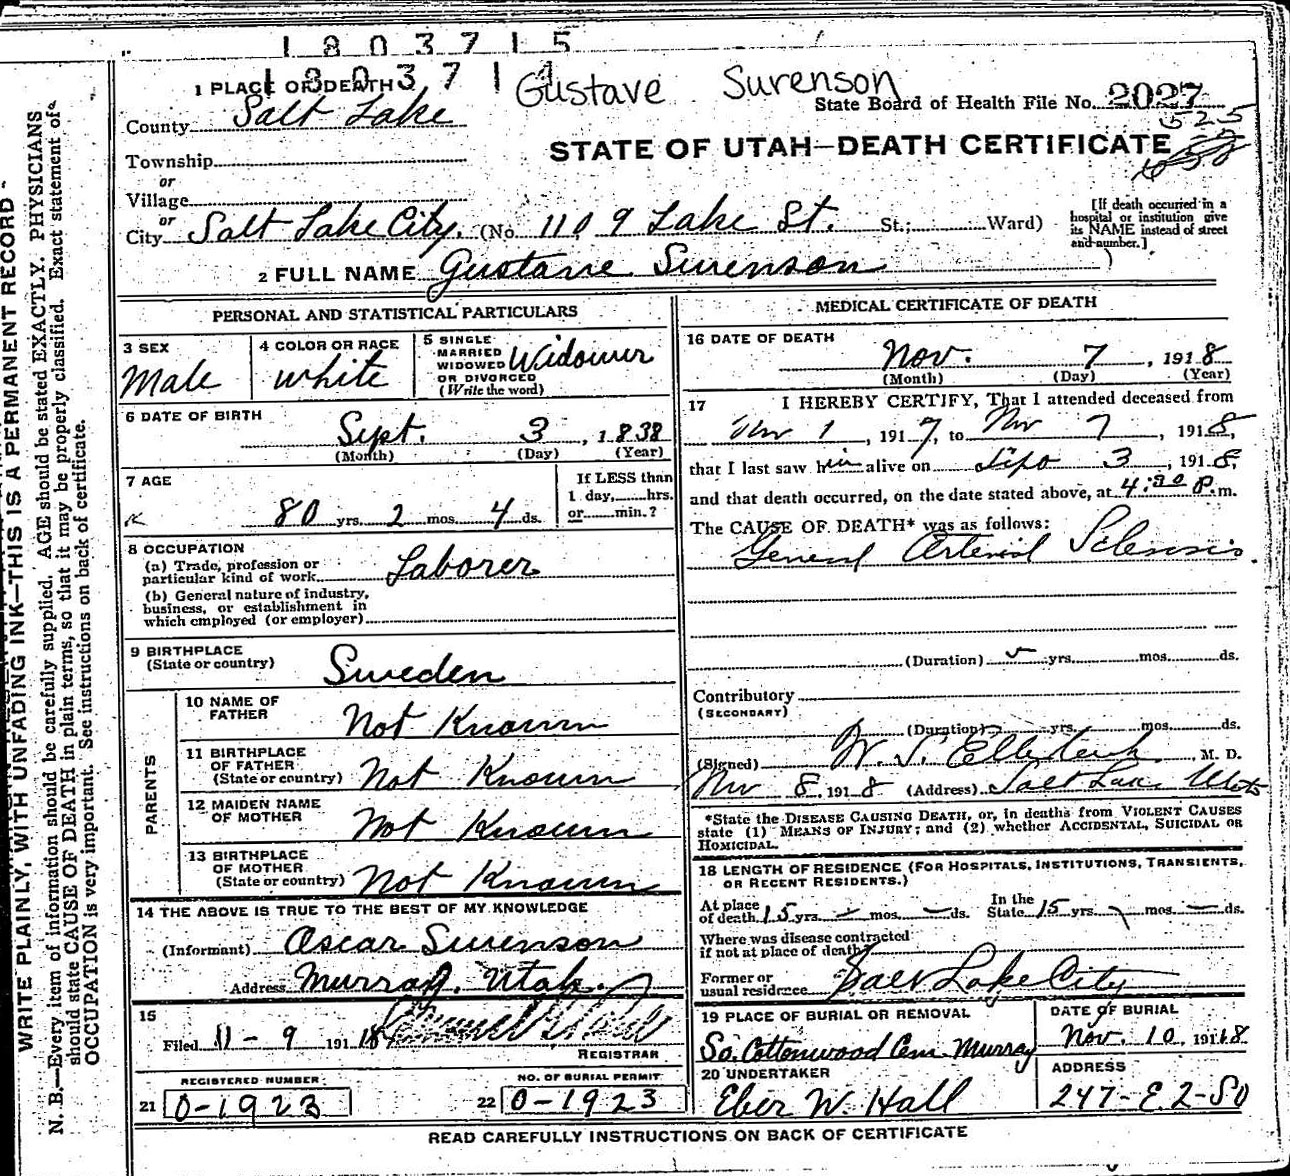 1803715
1803714
Gustave Surenson
1 PLACE OF DEATH
State Board of Health File No. 2027
County Salt Lake
525
STATE OF UTAH—DEATH CERTIFICATE
Township
or
Village
or
City Salt Lake City. (No. 1109 Lake St. St.; Ward)
[If death occuried in a hospital or institution give its NAME instead of street and number.]
2 FULL NAME Gustave Swenson
PERSONAL AND STATISTICAL PARTICULARS
3 SEX
Male
4 COLOR OR RACE
white
5 SINGLE MARRIED WIDOWED OR DIVORCED (Write the word)
Widower
6 DATE OF BIRTH
Sept. 3, 1838
(Month) (Day) (Year)
7 AGE
80 yrs. 2 mos. 4 ds.
If LESS than
1 day, hrs.
or min.?
8 OCCUPATION
(a) Trade, profession or
particular kind of work Laborer
(b) General nature of industry,
business, or establishment in
which employed (or employer)
9 BIRTHPLACE
(State or country) Sweden
PARENTS
10 NAME OF
FATHER Not Known
11 BIRTHPLACE
OF FATHER
(State or country) Not Known
12 MAIDEN NAME
OF MOTHER Not Known
13 BIRTHPLACE
OF MOTHER
(State or country) Not Known
14 THE ABOVE IS TRUE TO THE BEST OF MY KNOWLEDGE
(Informant) Oscar Swenson
Address Murray, Utah.
15
Filed 11-9 1918
REGISTRAR
REGISTERED NUMBER
21 0-1923
NO. OF BURIAL PERMIT
22 0-1923
MEDICAL CERTIFICATE OF DEATH
16 DATE OF DEATH
Nov. 7, 1918
(Month) (Day) (Year)
17 I HEREBY CERTIFY, That I attended deceased from
Nov 1, 1917, to Nov 7, 1918,
that I last saw him alive on Sept 3, 1918,
and that death occurred, on the date stated above, at 4:30 P.m.
The CAUSE OF DEATH* was as follows:
General Arterial Sclerosis.
(Duration) yrs. mos. ds.
Contributory
(SECONDARY)
(Duration) yrs. mos. ds.
(Signed) W. S. M. D.
Nov 8. 1918 (Address) Salt Lake Utah
*State the DISEASE CAUSING DEATH, or, in deaths from VIOLENT CAUSES
state (1) MEANS OF INJURY; and (2) whether ACCIDENTAL, SUICIDAL OR
HOMICIDAL.
18 LENGTH OF RESIDENCE (FOR HOSPITALS, INSTITUTIONS, TRANSIENTS,
OR RECENT RESIDENTS.)
At place
of death 15 yrs. – mos. – ds.
In the
State 15 yrs. mos. – ds.
Where was disease contracted
if not at place of death?
Former or
usual residence Salt Lake City
19 PLACE OF BURIAL OR REMOVAL
So. Cottonwood Cem. Murray
DATE OF BURIAL
Nov. 10. 1918
20 UNDERTAKER
Eber W. Hall
ADDRESS
247-E. 2-SO
READ CAREFULLY INSTRUCTIONS ON BACK OF CERTIFICATE
WRITE PLAINLY, WITH UNFADING INK—THIS IS A PERMANENT RECORD
N. B.—Every item of information should be carefully supplied. AGE should be stated EXACTLY. PHYSICIANS
should state CAUSE OF DEATH in plain terms, so that it may be properly classified. Exact statement of
OCCUPATION is very important. See instructions on back of certificate.